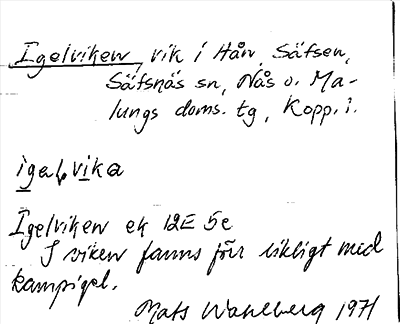 Igelviken, vik i Hån, Säfsen,
Säfsnäs sn, Nås o. Ma-
lungs doms. tg, Kopp. l.
igel,vika
Igelviken ek 12E 5e
I viken fanns förr rikligt med
kampigel.
Mats Wahlberg 1971